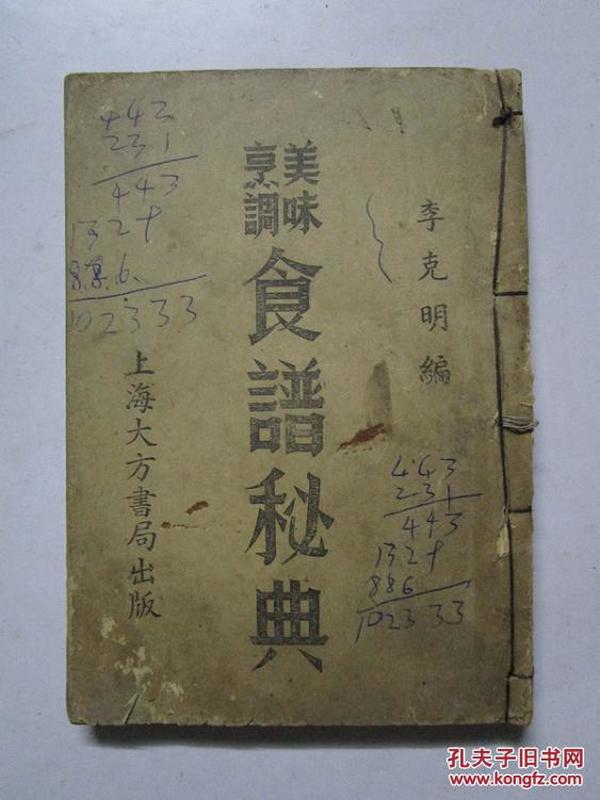 李克明編
美味
烹調
食譜秘典
上海大方書局出版
442
231
443
132
886
102333
443
231
443
132
886
102333
孔夫子旧书网
www.kongfz.com